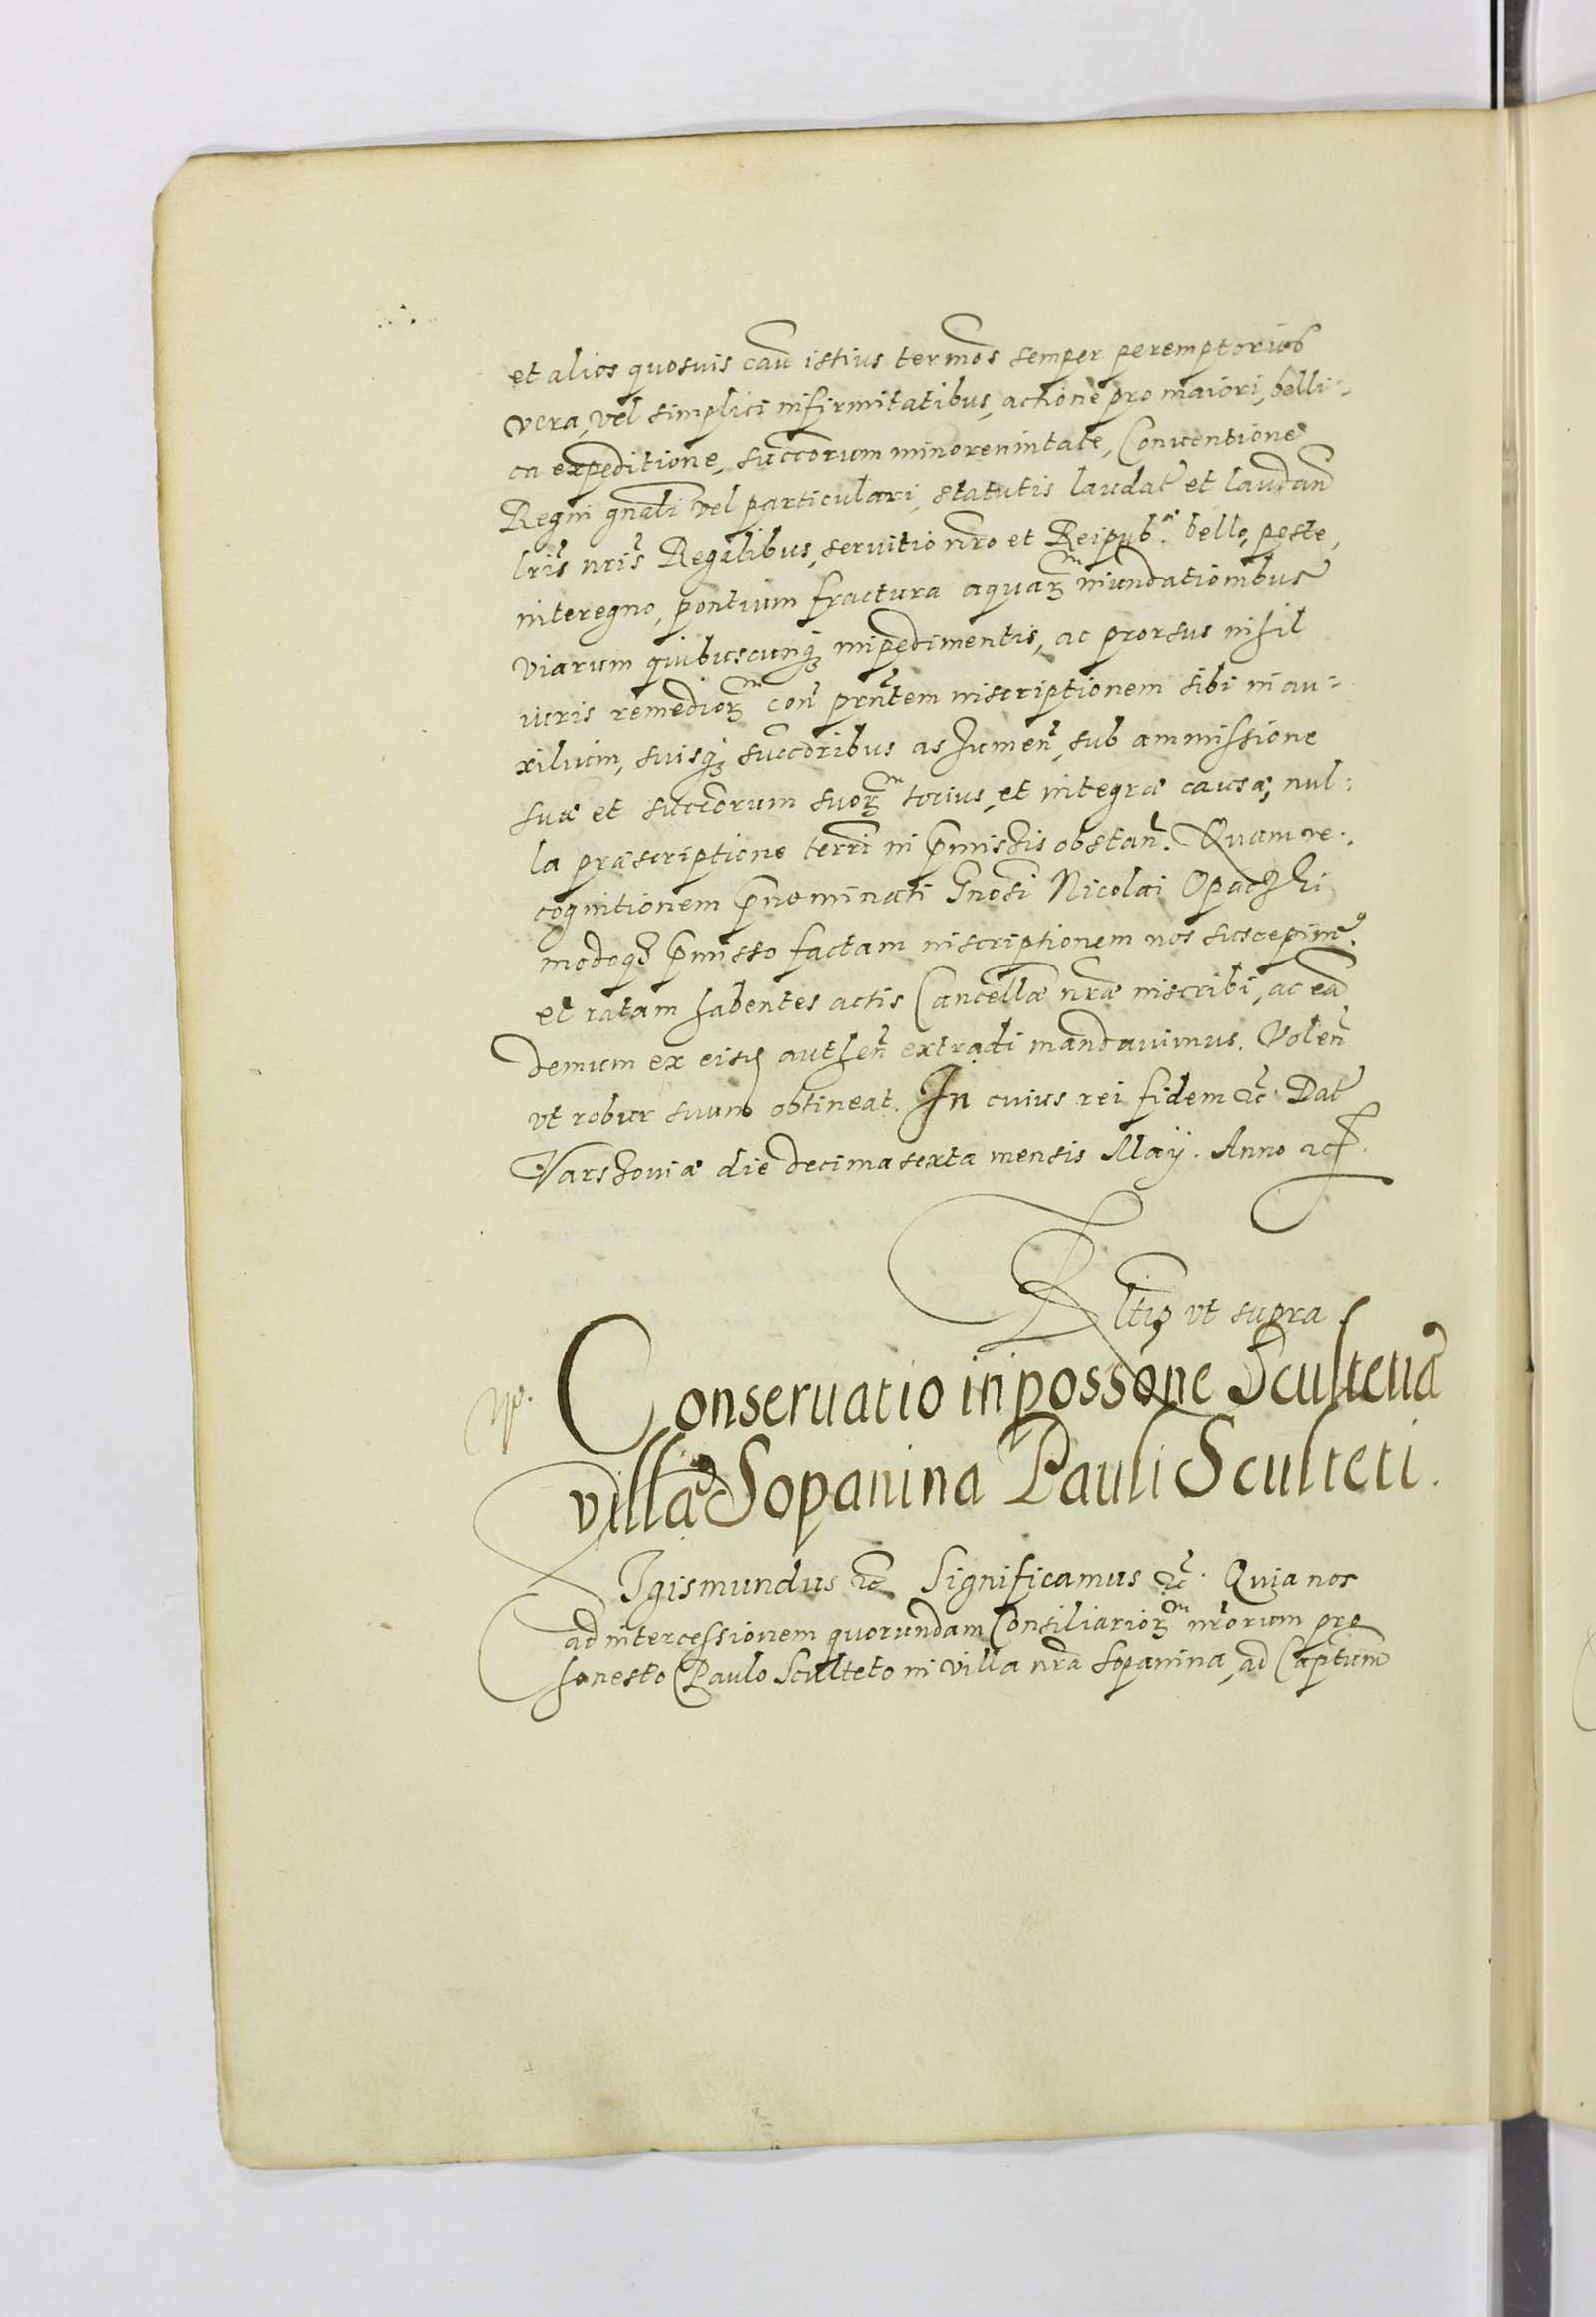 et alios quosuis cau istius termos semper peremptorios
vera, vel simplici infirmitatibus, actione pro maiori, belli-
ca expeditione, succorum minorenintate, Conuentione
Regni gnali vel particulari, statutis laudat et laudan
lris nris Regalibus, seruitio nro et Reipub. bello, peste,
interegno, pontium fractura aquarum inundationibus
viarum quibuscunq impedimentis, ac prorsus nihil
iuris remediorum con prntem inscriptionem sibi in au-
xilium, suisq succoribus assumen, sub ammissione
suæ et succorum suorum totius, et integræ causæ, nul-
la præscriptione terri in pmissis obstan. Quam re-
cognitionem pnominati Gnosi Nicolai Opaczki
modoq pmisso factam inscriptionem nos suscepim9
et ratam habentes actis Cancellæ nræ inscribi, ac ean
demum ex eisd authen extradi mandauimus. Volen
vt robur suum obtineat. In cuius rei fidem etc. Dat
Varshouiæ die decima sexta mensis May. Anno etc.
Rltio vt supra.
Conseruatio in possone Scultetiæ
villæ Sopanina Pauli Sculteti.
Sigismundus etc Significamus etc. Quia nos
ad intercessionem quorundam Consiliariorum nrorum pro
honesto Paulo Sculteto in villa nra Sopanina, ad Captum